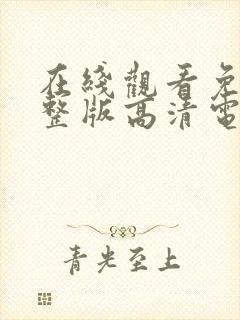 在綫觀看免
整版高清電
青光至上